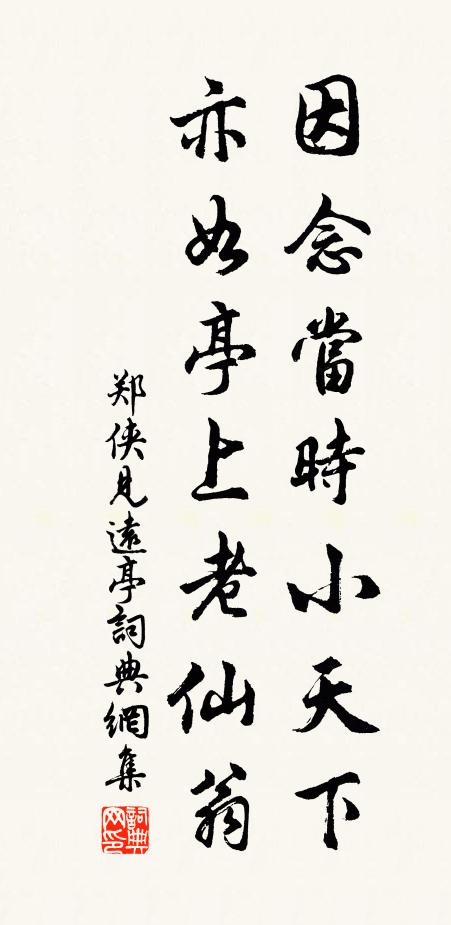 因念當時小天下
亦如亭上老仙翁
郑侠見遠亭詞典網集
詞典网印